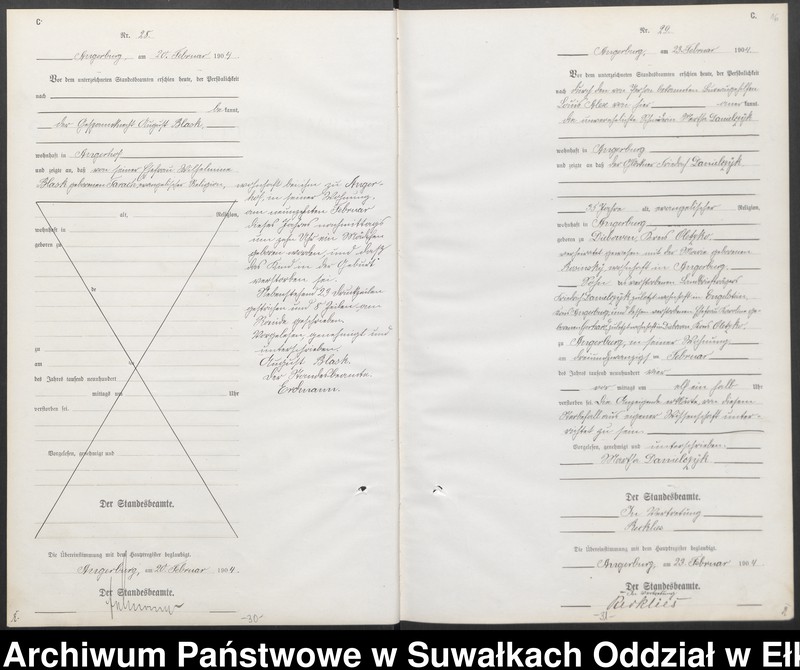 C
Nr. 28.
Angerburg, am 20. Februar 1904
Vor dem unterzeichneten Standesbeamten erschien heute, der Persönlichkeit
nach
be kannt,
der Gespannknecht August Blask,
wohnhaft in Angerhof
und zeigte an, daß von seiner Ehefrau Wilhelmine
Blask geborenen evangelischer Religion,
alt, Religion,
wohnhaft in
geboren zu
de
zu
am ten
des Jahres tausend neunhundert
mittags um Uhr
verstorben sei.
Vorgelesen, genehmigt und
Der Standesbeamte.
Die Übereinstimmung mit dem Hauptregister beglaubigt.
Angerburg, am 20. Februar 1904.
Der Standesbeamte.
Erdmann
wohnhaft bei ihm zu Anger-
hof, in seiner Wohnung
am neunzehnten Februar
dieses Jahres nachmittags
um zehn Uhr ein Mädchen
geboren worden und daß
das Kind in der Geburt
verstorben sei.
Nebenstehend 29 Druckzeilen
gestrichen und 8 Zeilen am
Rande geschrieben.
Vorgelesen, genehmigt und
unterschrieben
August Blask.
Der Standesbeamte
Erdmann
-30-
C.
Nr. 29.
Angerburg, am 23. Februar 1904.
Vor dem unterzeichneten Standesbeamten erschien heute, der Persönlichkeit
nach durch den von Person bekannten
Louis Alex von hier aner kannt,
die unverehelichte Martha Danielzyk
wohnhaft in Angerburg
und zeigte an, daß der Danielzyk
Jahre alt, evangelischer Religion,
wohnhaft in Angerburg
geboren zu Kreis Oletzko
verheiratet gewesen mit der Marie geborenen
wohnhaft in Angerburg
Sohn des verstorbenen
Danielzyk zuletzt wohnhaft in
Kreis Angerburg und dessen verstorbenen Ehefrau ge-
borenen zuletzt wohnhaft in Kreis Oletzko,
zu Angerburg, in seiner Wohnung
am dreiundzwanzigsten Februar
des Jahres tausend neunhundert vier
vor mittags um elf ein halb Uhr
verstorben sei. Die Anzeigende erklärte, von diesem
Sterbefall aus eigener Wissenschaft unter-
richtet zu sein.
Vorgelesen, genehmigt und unterschrieben
Martha Danielzyk
Der Standesbeamte.
In Vertretung
Rerklies
Die Übereinstimmung mit dem Hauptregister beglaubigt.
Angerburg, am 23. Februar 1904
Der Standesbeamte.
In Vertretung
Rerklies
-31-
Archiwum Państwowe w Suwałkach Oddział w Eł